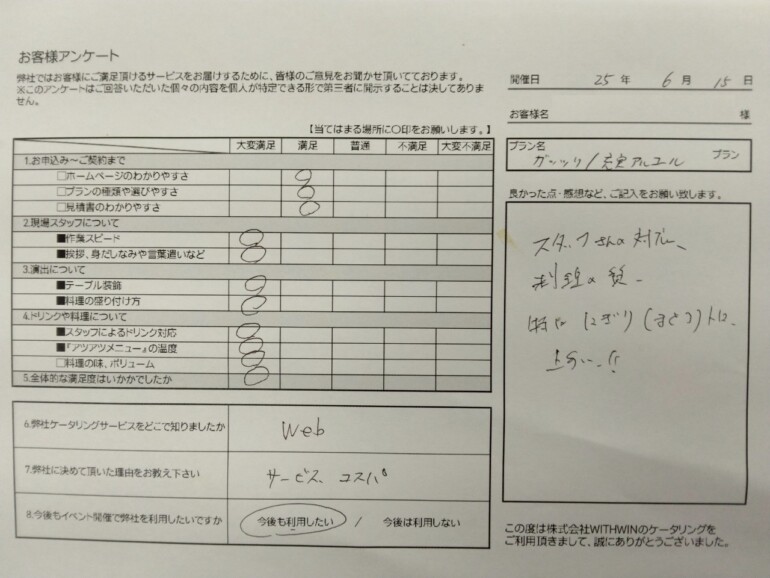 お客様アンケート
弊社ではお客様にご満足頂けるサービスをお届けするために、皆様のご意見をお聞かせ頂いております。
※このアンケートはご回答いただいた個々の内容を個人が特定できる形で第三者に開示することは決してありま
せん。
【当てはまる場所に〇印をお願いします。】
大変満足 満足 普通 不満足 大変不満足
1.お申込み～ご契約まで
□ホームページのわかりやすさ
□プランの種類や選びやすさ
□見積書のわかりやすさ
2.現場スタッフについて
■作業スピード
■挨拶、身だしなみや言葉遣いなど
3.演出について
■テーブル装飾
■料理の盛り付け方
4.ドリンクや料理について
■スタッフによるドリンク対応
■『アツアツメニュー』の温度
□料理の味、ボリューム
5.全体的な満足度はいかがでしたか
6.弊社ケータリングサービスをどこで知りましたか
Web
7.弊社に決めて頂いた理由をお教え下さい
サービス、コスパ
8.今後もイベント開催で弊社を利用したいですか
今後も利用したい / 今後は利用しない
開催日 25 年 6 月 15 日
お客様名 様
プラン名
ガッツリ/充実アルコール プラン
良かった点・感想など、ご記入をお願い致します。
スタッフさんの対応、
料理の質、
特に にぎり (まぐろ)
この度は株式会社WITHWINのケータリングを
ご利用頂きまして、誠にありがとうございました。